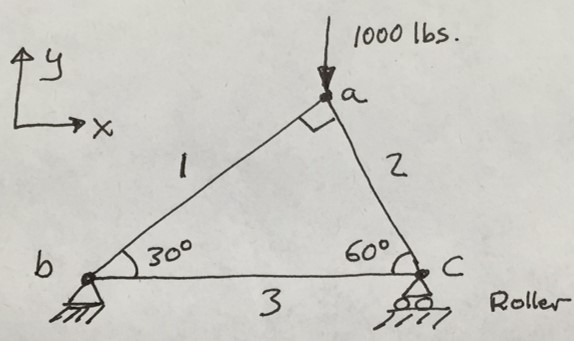 1000 lbs.
y
a
x
1
2
b
30°
60°
c
3
Roller